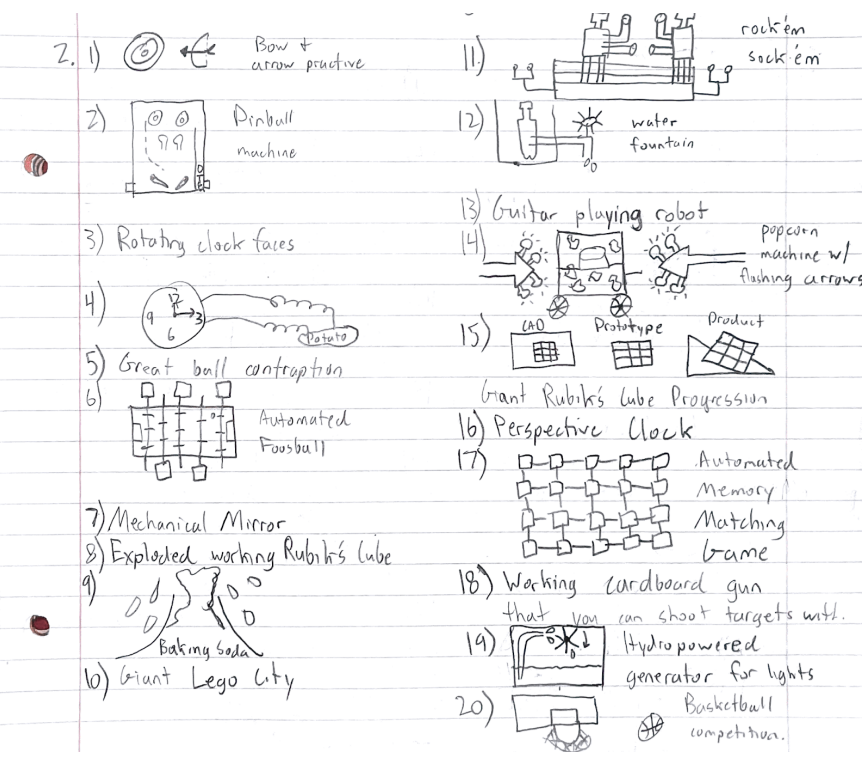 2. 1) Bow +
arrow practive
2) Pinball
machine
3) Rotating clock faces
4) 12
9 3
6 Potato
5) Great ball contraption
6) Automated
Foosball
7) Mechanical Mirror
8) Exploded working Rubik's Cube
9)
Baking Soda
10) Giant Lego City
11) rock'em
sock'em
12) water
fountain
13) Guitar playing robot
14) popcorn
machine w/
flashing arrows
15) CAD Prototype Product
Giant Rubik's Cube Progression
16) Perspective Clock
17) Automated
Memory
Matching
Game
18) Working cardboard gun
that you can shoot targets with.
19) Hydropowered
generator for lights
20) Basketball
competition.